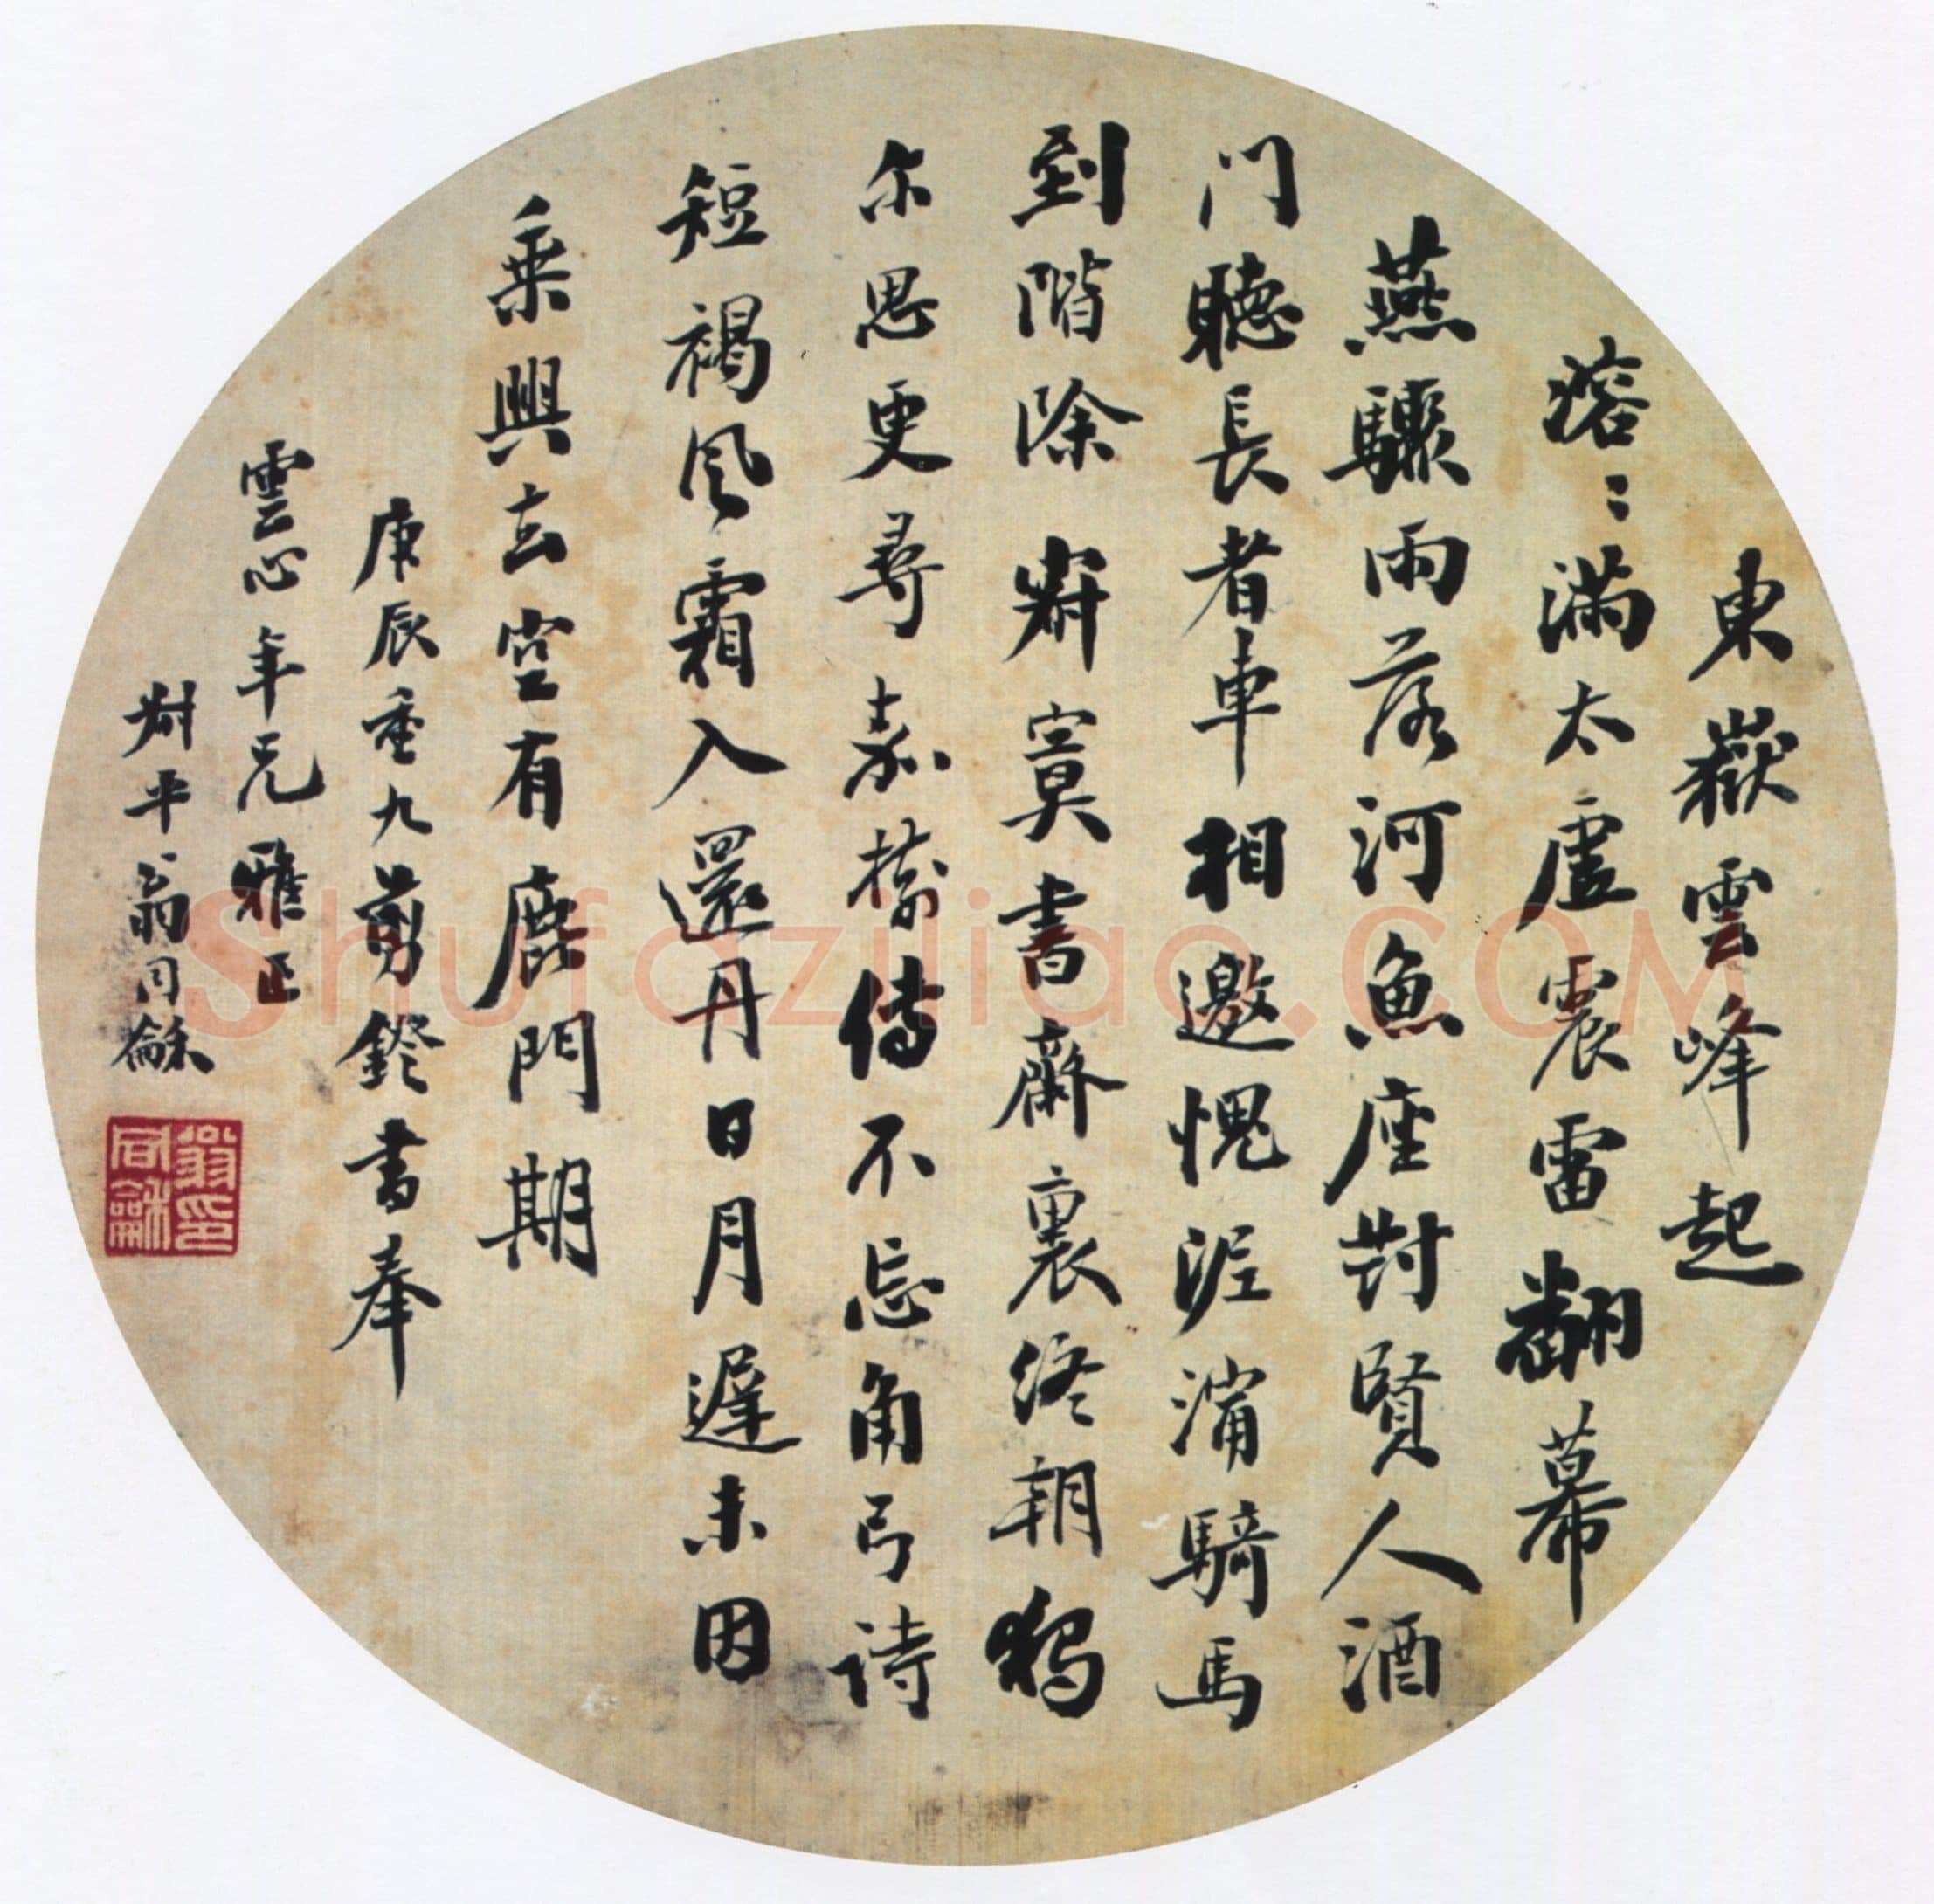 東嶽雲峰起
溶〻滿太虛震雷翻幕
燕驟雨落河魚座對賢人酒
门聽長者車相邀愧泥濘騎馬
到階除 寂寞書齋裏終朝獨
尔思更尋嘉樹傳不忘角弓詩
短褐風霜入還丹日月遲未因
乘興去空有鹿門期
庚辰重九剪鐙書奉
雲心年兄雅正
叔平翁同龢
翁同龢印
Shufaziliao.COM